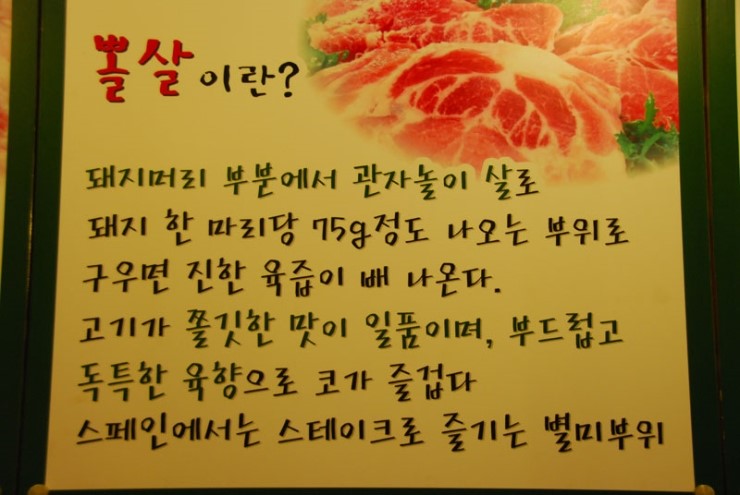 뽈살이란?
돼지머리 부분에서 관자놀이 살로
돼지 한 마리당 75g정도 나오는 부위로
구우면 진한 육즙이 배 나온다.
고기가 쫄깃한 맛이 일품이며, 부드럽고
독특한 육향으로 코가 즐겁다
스페인에서는 스테이크로 즐기는 별미부위